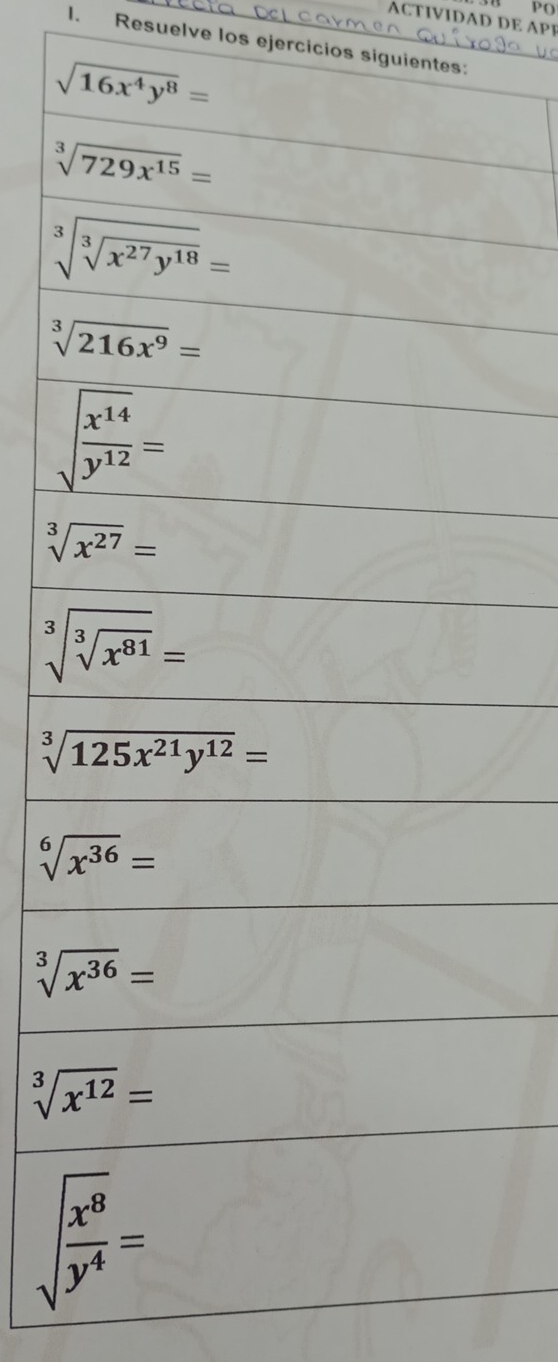 Del carmen Quiroga
ACTIVIDAD DE
I. Resuelve los ejercicios siguientes:
√(16x⁴y⁸) =
³√(729x¹⁵) =
³√(³√(x²⁷y¹⁸)) =
³√(216x⁹) =
√(x¹⁴/y¹²) =
³√(x²⁷) =
³√(³√(x⁸¹)) =
³√(125x²¹y¹²) =
⁶√(x³⁶) =
³√(x³⁶) =
³√(x¹²) =
√(x⁸/y⁴) =